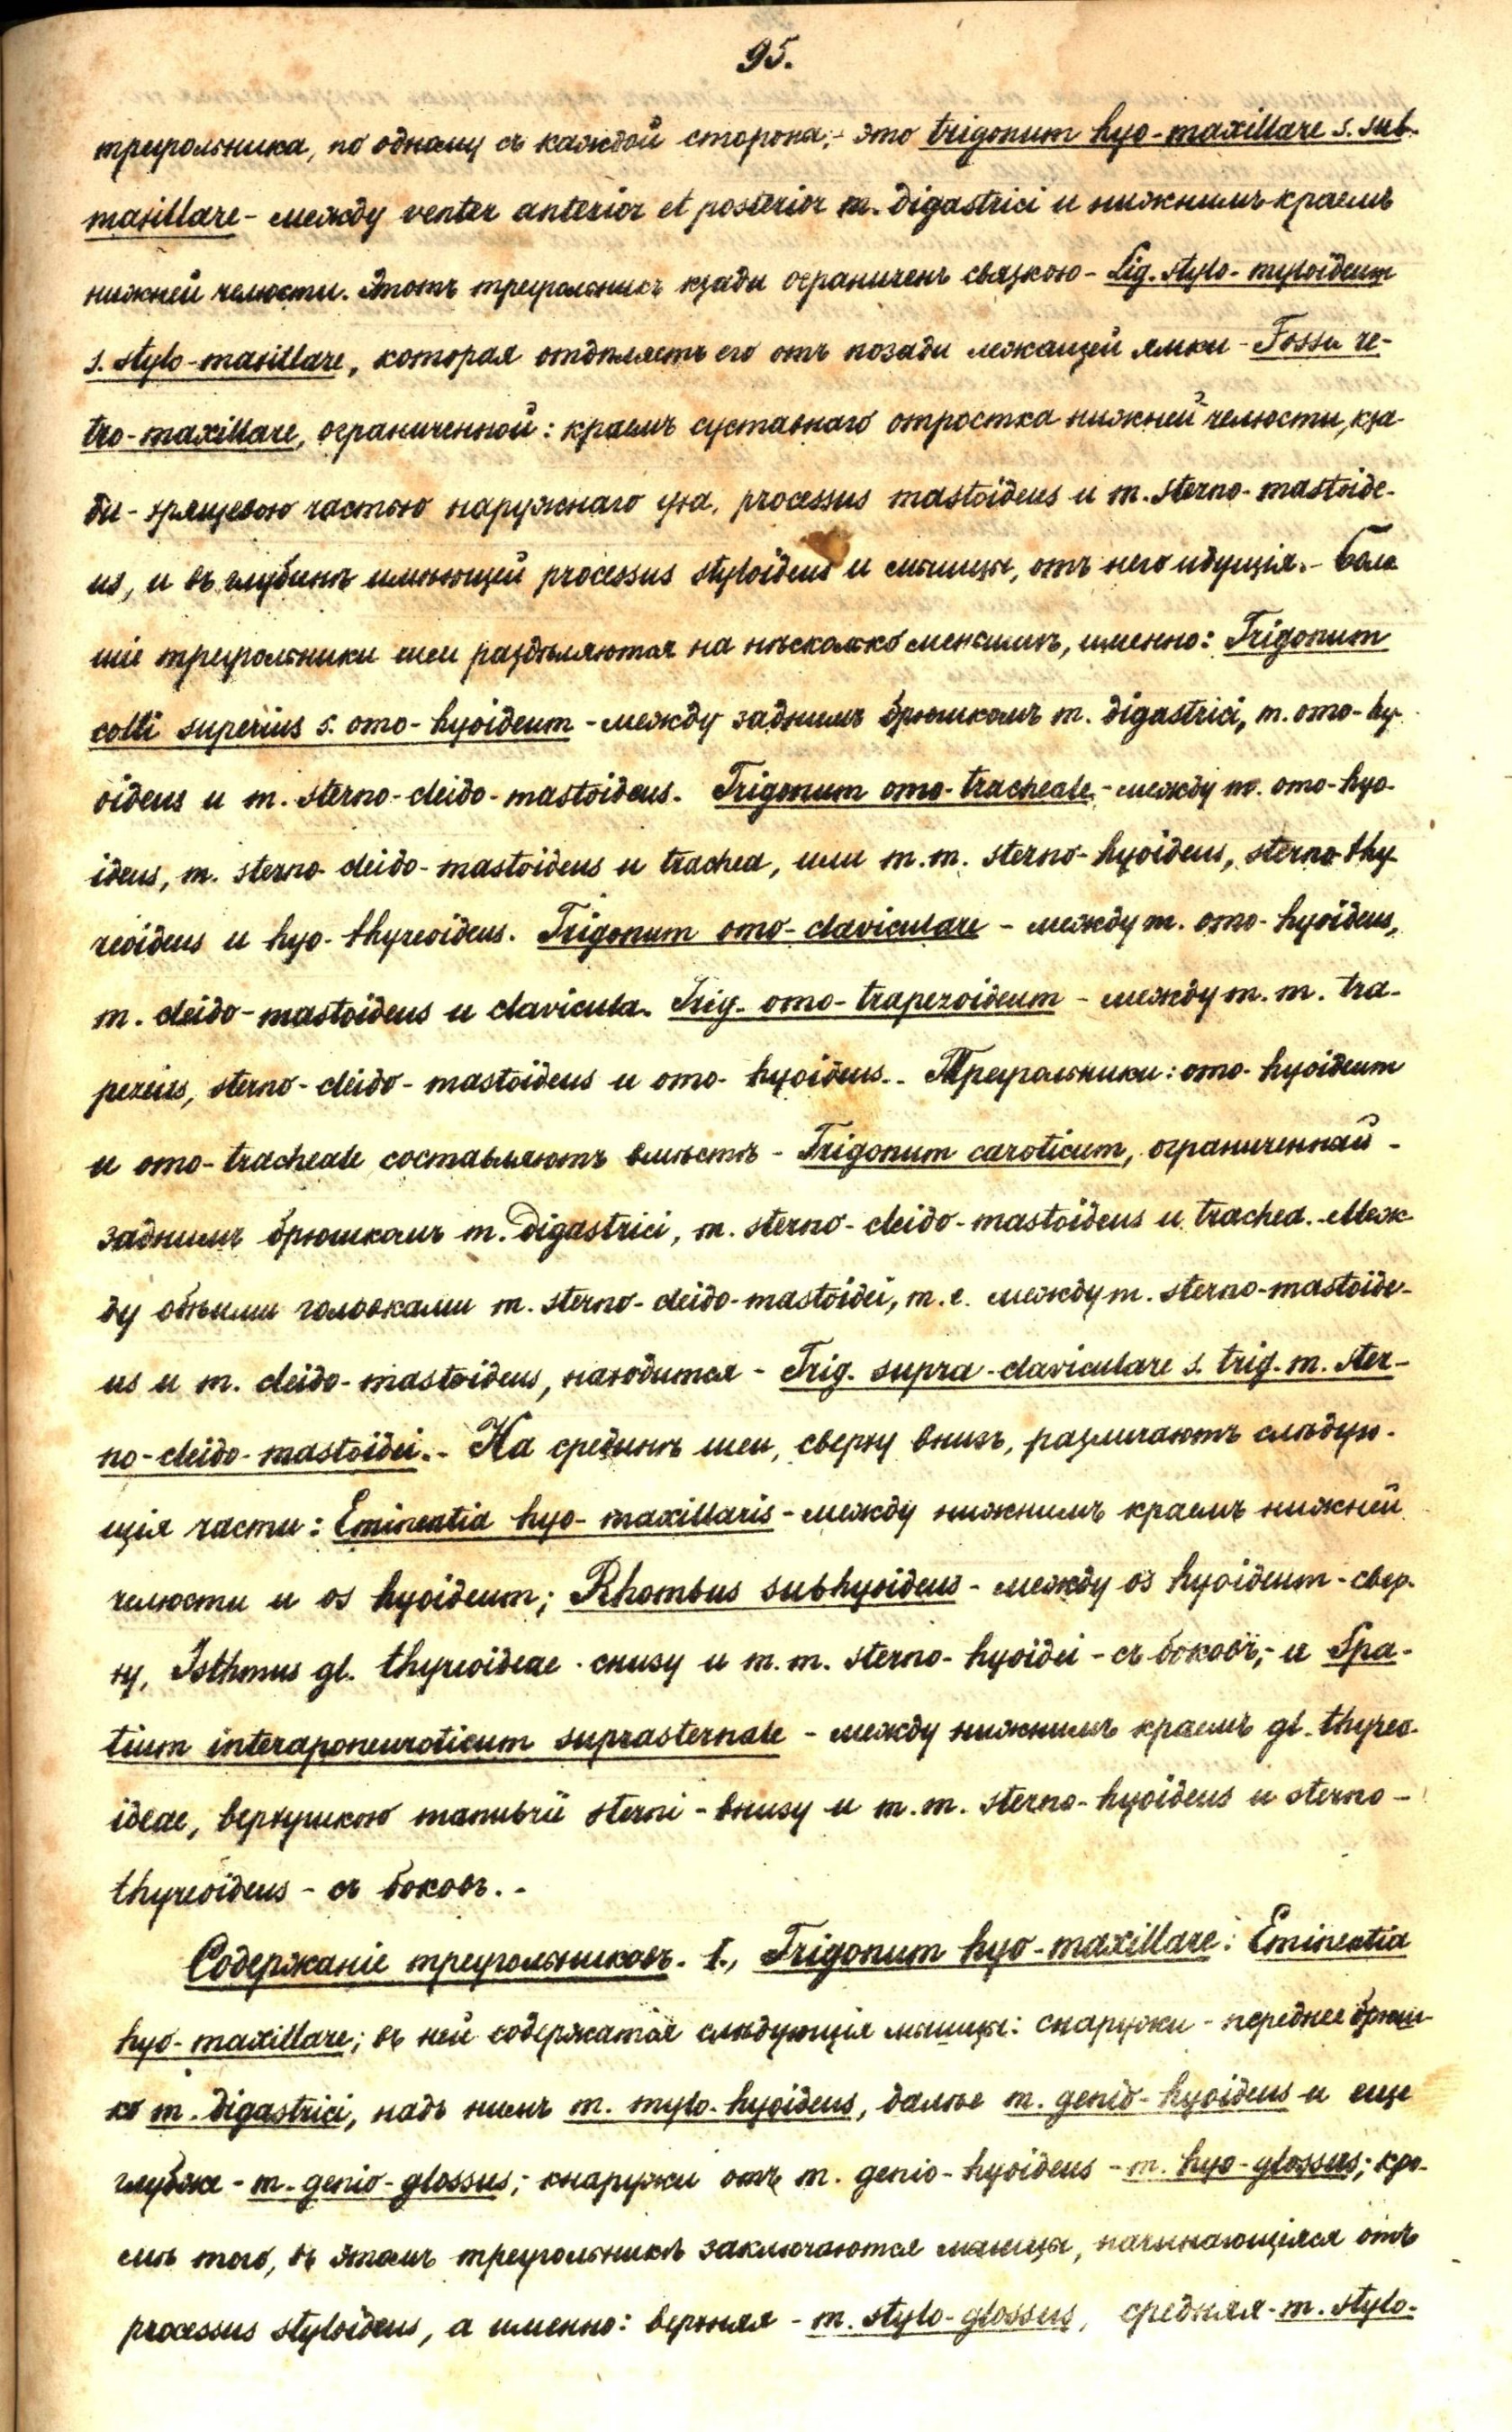 95.
треугольника, по одному съ каждой стороны;- это trigonum hyo-maxillare s. sub-
maxillare - между venter anterior et posterior m. digastrici и нижнимъ краемъ
нижней челюсти. Этотъ треугольникъ кзади ограниченъ связкою - Lig. stylo-myloideum
s. stylo-maxillare, которая отдѣляетъ его отъ позади лежащей ямки - Fossa re-
tro-maxillare, ограниченной: краемъ суставнаго отростка нижней челюсти, кза-
ди - хрящевою частью наружнаго уха, processus mastoideus и m. sterno-mastoide-
us, и въ глубинѣ имѣющей processus styloideus и мышцы, отъ него идущія. - Боль
шіе треугольники шеи раздѣляются на нѣсколько меньшихъ, именно: Trigonum
colli superius s. omo-hyoideum - между заднимъ брюшкомъ m. digastrici, m. omo-hy-
oideus и m. sterno-cleido-mastoideus. Trigonum omo-tracheale - между m. omo-hyo-
ideus, m. sterno-cleido-mastoideus и trachea, или m.m. sterno-hyoideus, sterno-thy-
reoideus и hyo-thyreoideus. Trigonum omo-claviculare - между m. omo-hyoideus,
m. cleido-mastoideus и clavicula. Trig. omo-trapezoideum - между m. m. tra-
pezius, sterno-cleido-mastoideus и omo-hyoideus. - Треугольники: omo-hyoideum
и omo-tracheale составляютъ вмѣстѣ - Trigonum caroticum, ограниченный -
заднимъ брюшкомъ m. digastrici, m. sterno-cleido-mastoideus и trachea. - Меж-
ду обѣими головками m. sterno-cleido-mastoidei, т. е. между m. sterno-mastoide-
us и m. cleido-mastoideus, находится - Trig. supra-claviculare s. trig. m. ster-
no-cleido-mastoidei. - На срединѣ шеи, сверху внизъ, различаютъ слѣдую-
щія части: Eminentia hyo-maxillaris - между нижнимъ краемъ нижней
челюсти и os hyoideum; Rhombus subhyoideus - между os hyoideum - свер-
ху, Isthmus gl. thyreoideae - снизу и m. m. sterno-hyoidei - съ боковъ; - и Spa-
tium interaponeuroticum suprasternale - между нижнимъ краемъ gl. thyreo-
ideae, верхушкою manubrii sterni - внизу и m. m. sterno-hyoideus и sterno-
thyreoideus - съ боковъ. -
Содержаніе треугольниковъ. I., Trigonum hyo-maxillare: Eminentia
hyo-maxillare; въ ней содержатся слѣдующія мышцы: снаружи - переднее брюш-
ко m. digastrici, надъ нимъ m. mylo-hyoideus, далѣе m. genio-hyoideus и еще
глубже - m. genio-glossus; кнаружи отъ m. genio-hyoideus - m. hyo-glossus; кро-
мѣ того, въ этомъ треугольникѣ заключаются мышцы, начинающіяся отъ
processus styloideus, а именно: верхняя - m. stylo-glossus, средняя - m. stylo-